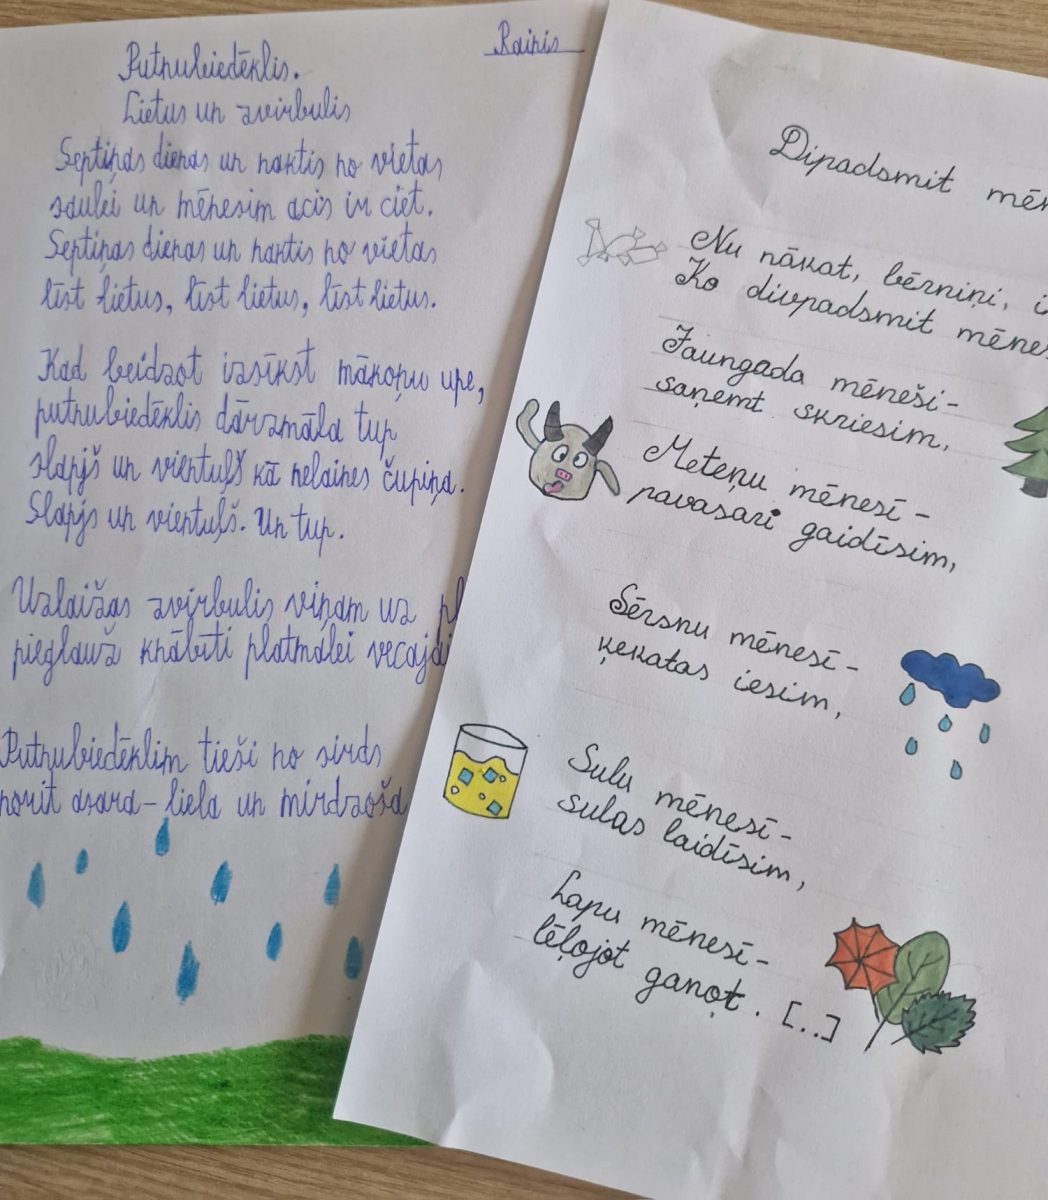 Rainis
Putnubiedēklis.
Lietus un zvirbulis
Septiņas dienas un naktis no vietas
saulei un mēnesim acis ir ciet.
Septiņas dienas un naktis no vietas
līst lietus, līst lietus, līst lietus.
Kad beidzot izsīkst mākoņu upe,
putnubiedēklis dārzmāla tup
slapjš un vientuļš kā nelaines čupiņa.
Slapjs un vientuļš. Un tup.
Uzlaižas zvirbulis viņam uz
pieglauž knābīti platmalei
Putnubiedēklim tieši no sirds
norit asara - liela un mirdzoša
Dipadsmit
Nu nākat, bērniņi,
Ko divpadsmit
Jaungada mēneši-
saņemt skriesim,
Meteņu mēnesī -
pavasari gaidīsim,
Sērsnu mēnesī -
ķekatas iesim,
Sulu mēnesī -
sulas laidīsim,
Lapu mēnesī -
lēļojot ganot. [..]